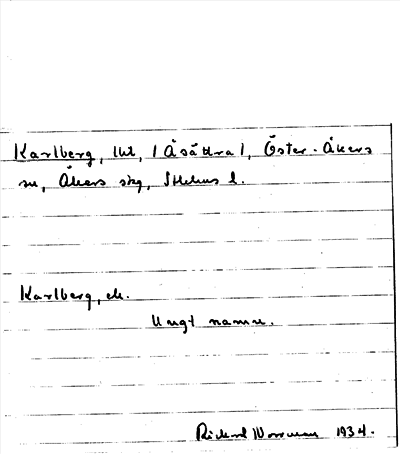 Karlberg, lht, (Åsätra), Öster-Åkers
sn, Åkers skg, Sthlms l.
Karlberg, ch.
Ungt namn.
Rickard Wornman 1934.